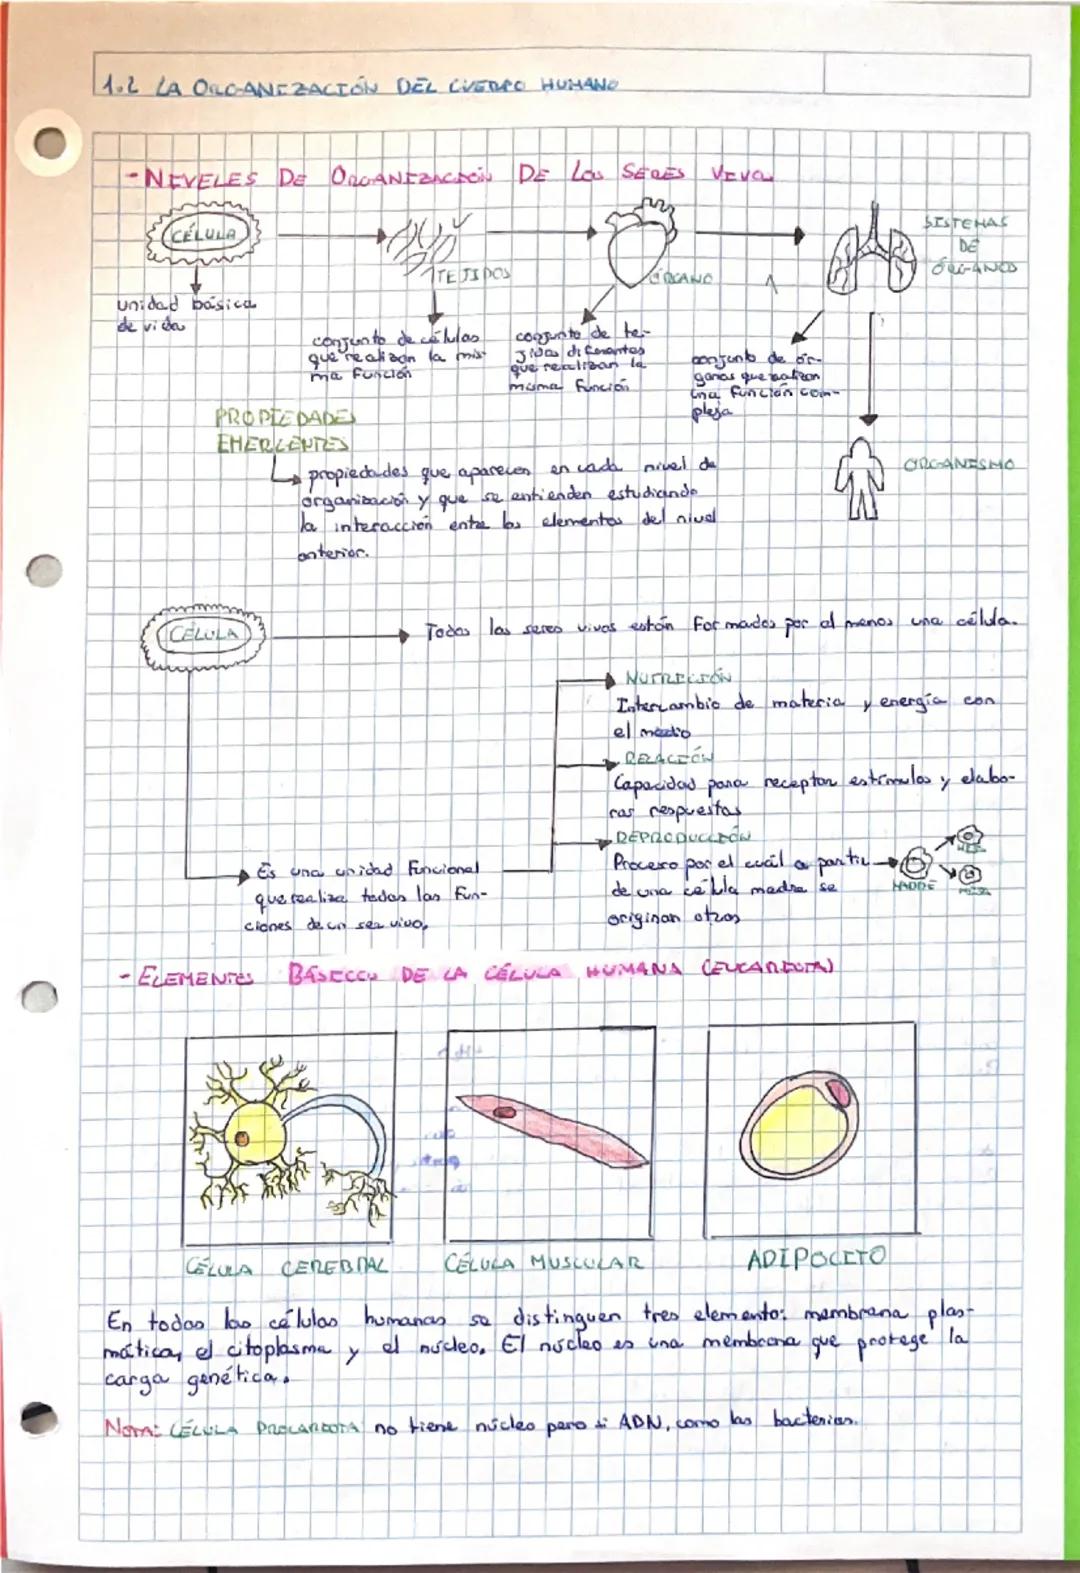 1.2 LA ORGANIZACIÓN DEL CUERPO HUMANO
- NIVELES DE ORGANIZACIÓN DE LOS SERES VIVOS
CÉLULA
unidad básica
de vida
TEJIDOS
conjunto de células
que realizan la mis-
ma función
ÓRGANO
conjunto de te-
jidos diferentes
que realizan la
misma función
SISTEMAS
DE
ÓRGANOS
conjunto de ór-
ganos que realizan
una función com-
pleja
ORGANISMO
PROPIEDADES
EMERGENTES
propiedades que aparecen en cada nivel de
organización y que se entienden estudiando
la interacción entre los elementos del nivel
anterior.
CÉLULA
Todos los seres vivos están formados por al menos una célula.
Es una unidad funcional
que realiza todas las fun-
ciones de un ser vivo.
NUTRICIÓN
Intercambio de materia y energía con
el medio
RELACIÓN
Capacidad para receptar estímulos y elabo-
rar respuestas
REPRODUCCIÓN
Proceso por el cuál a partir
de una célula madre se
originan otras
MADRE
HIJA
HIJA
- ELEMENTOS BÁSICOS DE LA CÉLULA HUMANA (EUCARIOTA)
CÉLULA CEREBRAL
CÉLULA MUSCULAR
ADIPOCITO
En todas las células humanas se distinguen tres elemento: membrana plas-
mática, el citoplasma y el núcleo. El núcleo es una membrana que protege la
carga genética.
Nota: CÉLULA PROCARIOTA no tiene núcleo pero si ADN, como las bacterias.